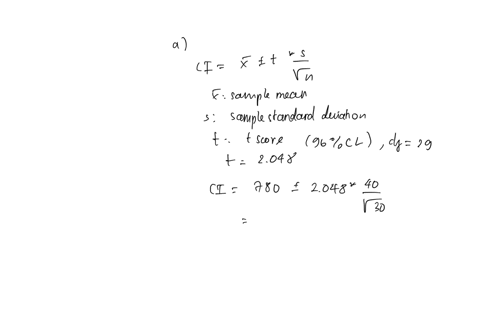 a)
CI = x̄ ± t * s / √n
x̄: sample mean
s: sample standard deviation
t: t score (96% CL), df = 29
t = 2.048
CI = 780 ± 2.048 * 40 / √30
=